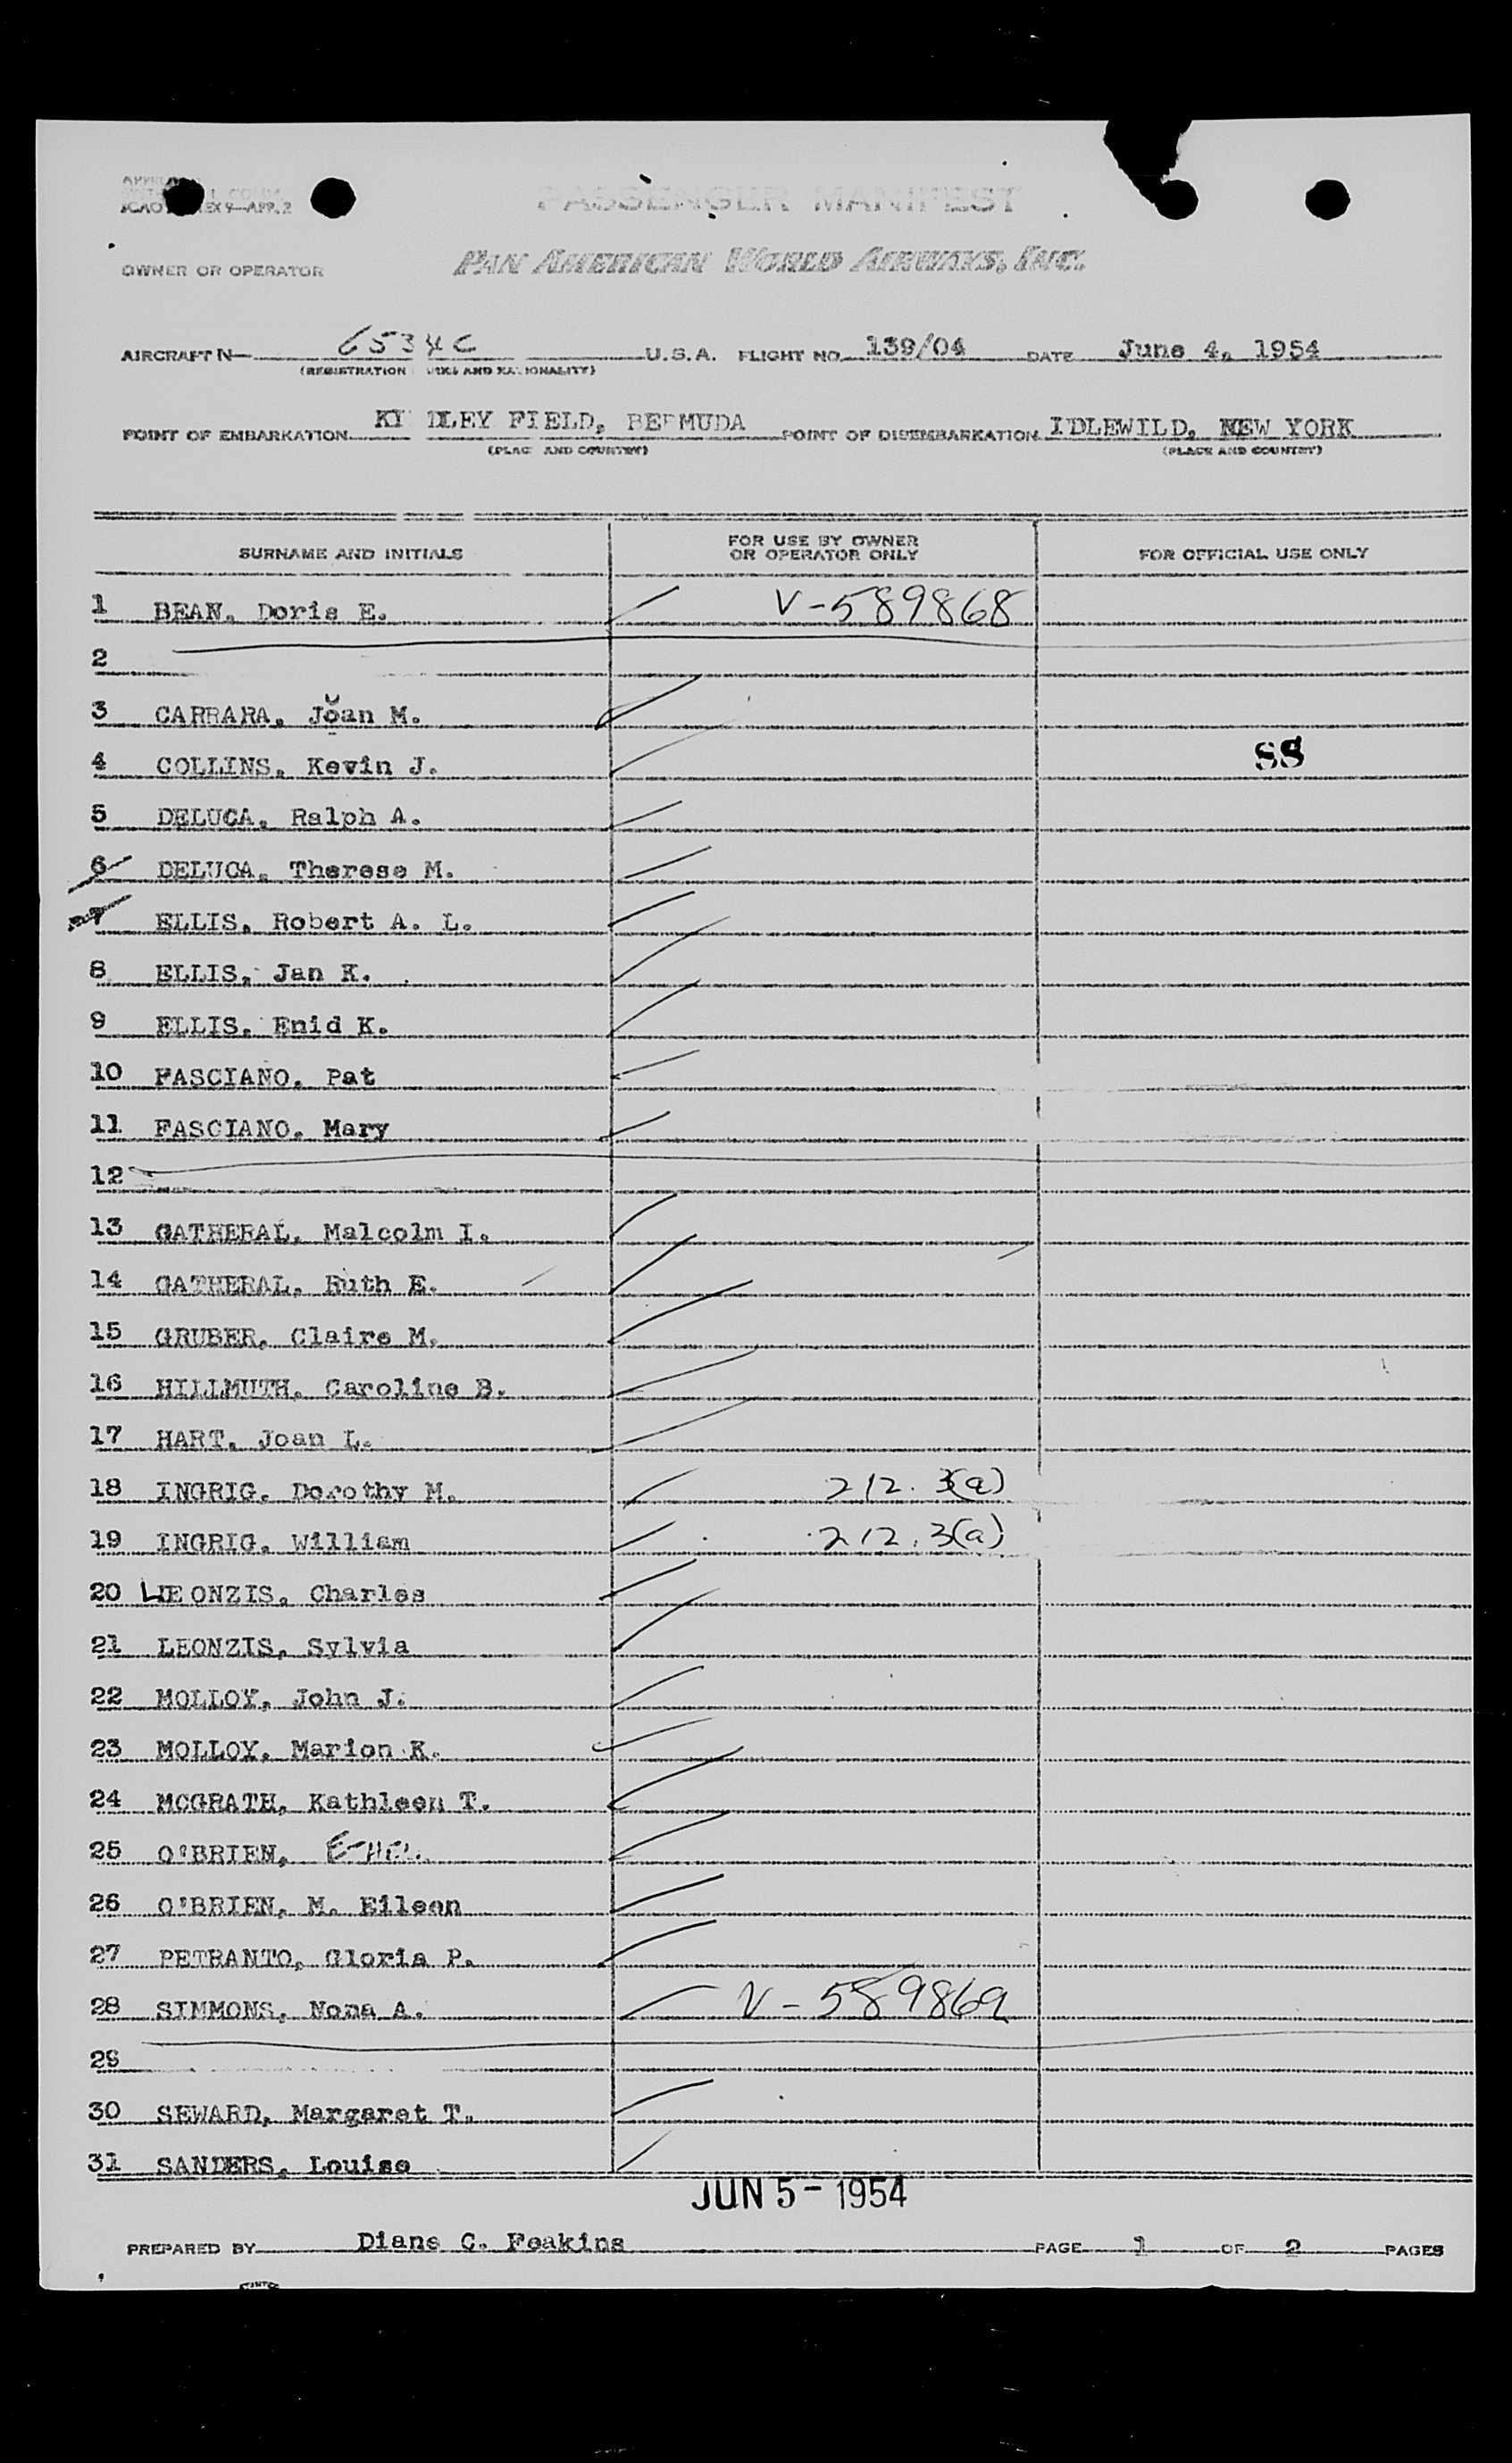 PASSENGER MANIFEST
OWNER OR OPERATOR PAN AMERICAN WORLD AIRWAYS, INC.
AIRCRAFT N 6534C U.S.A. FLIGHT NO. 139/04 DATE June 4, 1954
(REGISTRATION MARKS AND NATIONALITY)
POINT OF EMBARKATION KINDLEY FIELD, BERMUDA POINT OF DISEMBARKATION IDLEWILD, NEW YORK
(PLACE AND COUNTRY) (PLACE AND COUNTRY)
SURNAME AND INITIALS FOR USE BY OWNER OR OPERATOR ONLY FOR OFFICIAL USE ONLY
1 BEAN, Doris E. V-589868
2
3 CARRARA, Joan M.
4 COLLINS, Kevin J. SS
5 DELUCA, Ralph A.
6 DELUCA, Therese M.
7 ELLIS, Robert A. L.
8 ELLIS, Jan K.
9 ELLIS, Enid K.
10 FASCIANO, Pat
11 FASCIANO, Mary
12
13 GATHERAL, Malcolm I.
14 GATHERAL, Ruth E.
15 GRUBER, Claire M.
16 HILLMUTH, Caroline B.
17 HART, Joan L.
18 INGRIG, Dorothy M. 212.3(a)
19 INGRIG, William 212.3(a)
20 LEONZIS, Charles
21 LEONZIS, Sylvia
22 MOLLOY, John J.
23 MOLLOY, Marion K.
24 MCGRATH, Kathleen T.
25 O'BRIEN,
26 O'BRIEN, M. Eileen
27 PETRANTO, Gloria P.
28 SIMMONS, Nona A. V-589869
29
30 SEWARD, Margaret T.
31 SANDERS, Louise
JUN 5-1954
PREPARED BY Diane C. Feakins PAGE 1 OF 2 PAGES